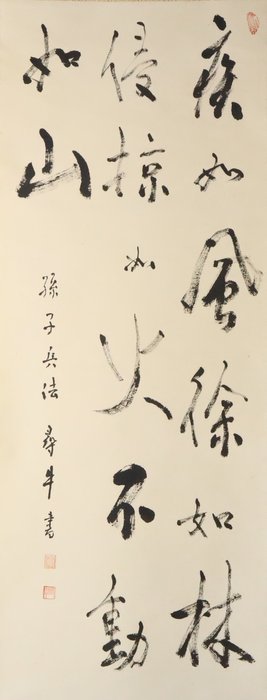 疾如風徐如林
侵掠如火不動
如山
孫子兵法 尋牛書